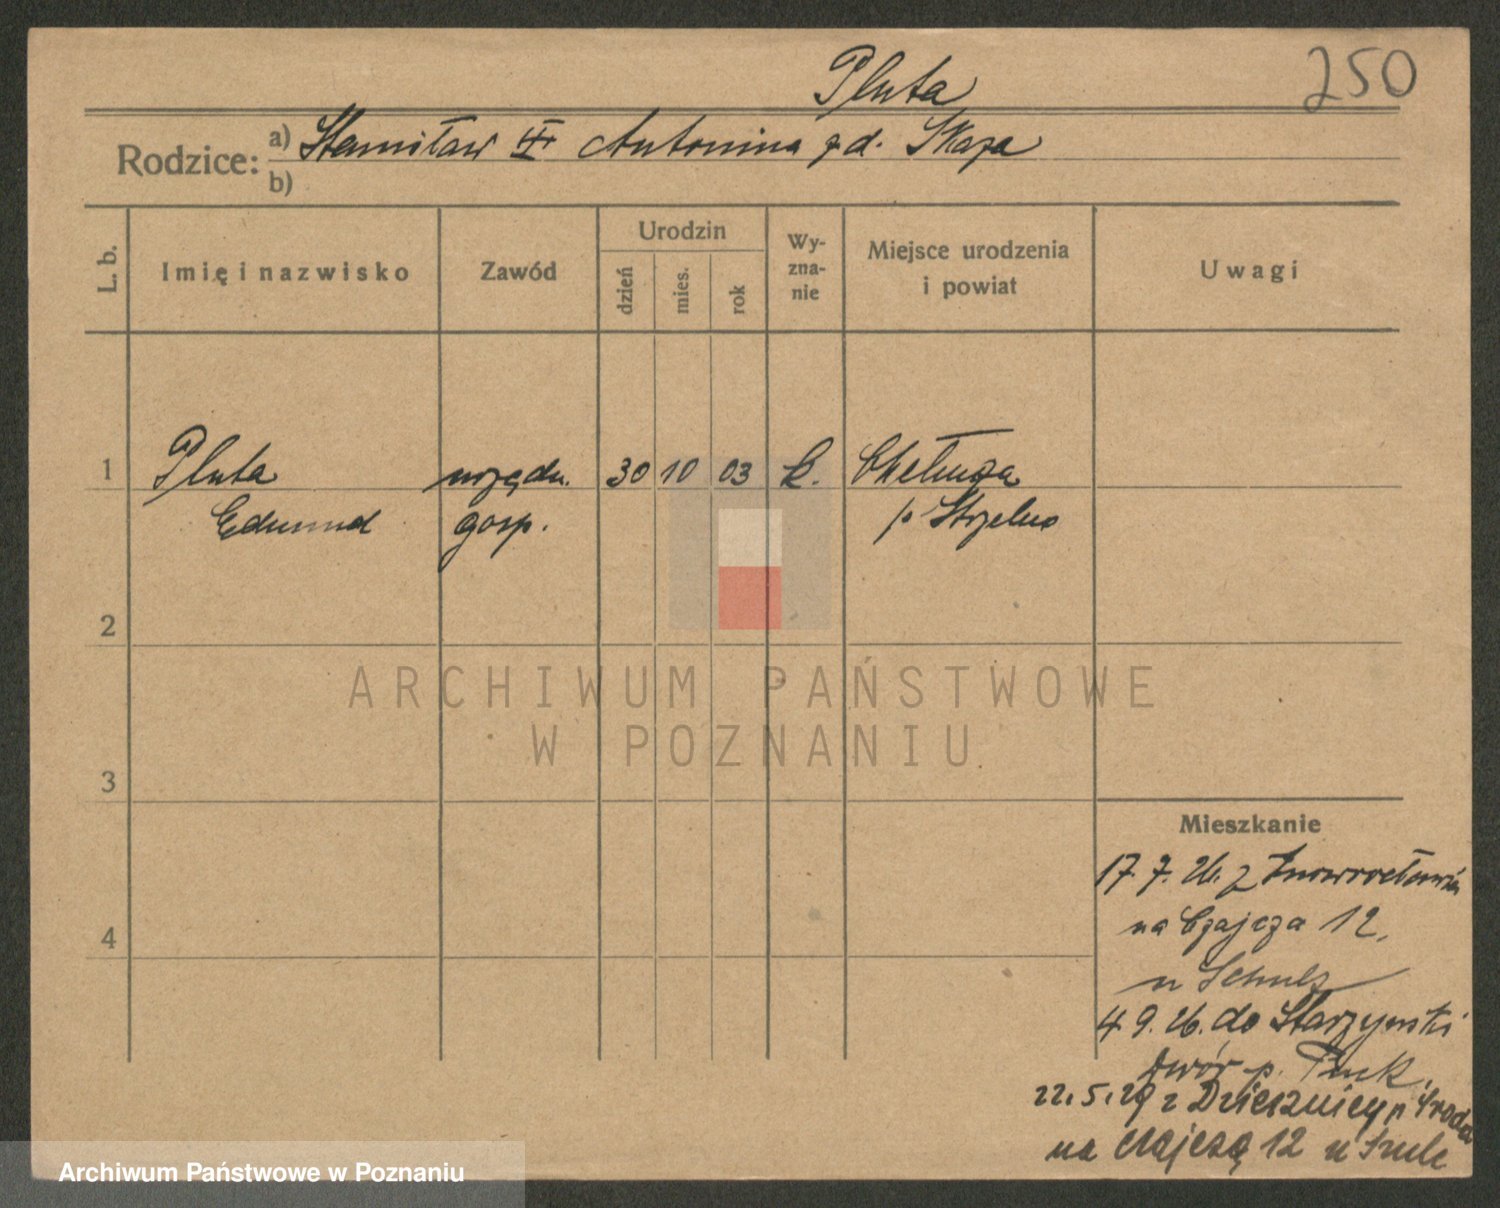 250
Pluta
Rodzice: a) Stanisław Antonina zd. Skaza
b)
L. b. Imię i nazwisko Zawód Urodzin dzień mies. rok Wyzna-nie Miejsce urodzenia i powiat Uwagi
1 Pluta urzędn. 30 10 03 k. Chełmża
Edmund gosp. p. Strzelno
2
3
4
ARCHIWUM PAŃSTWOWE
W POZNANIU
Mieszkanie
17. 7. 26. z Inowrocławia
na Czajcza 12.
u Schulz
4 9. 26. do Starzyński
Dwór p. Puck.
22. 5. 29 z p Środa
na Czajczą 12 u Szulc
Archiwum Państwowe w Poznaniu